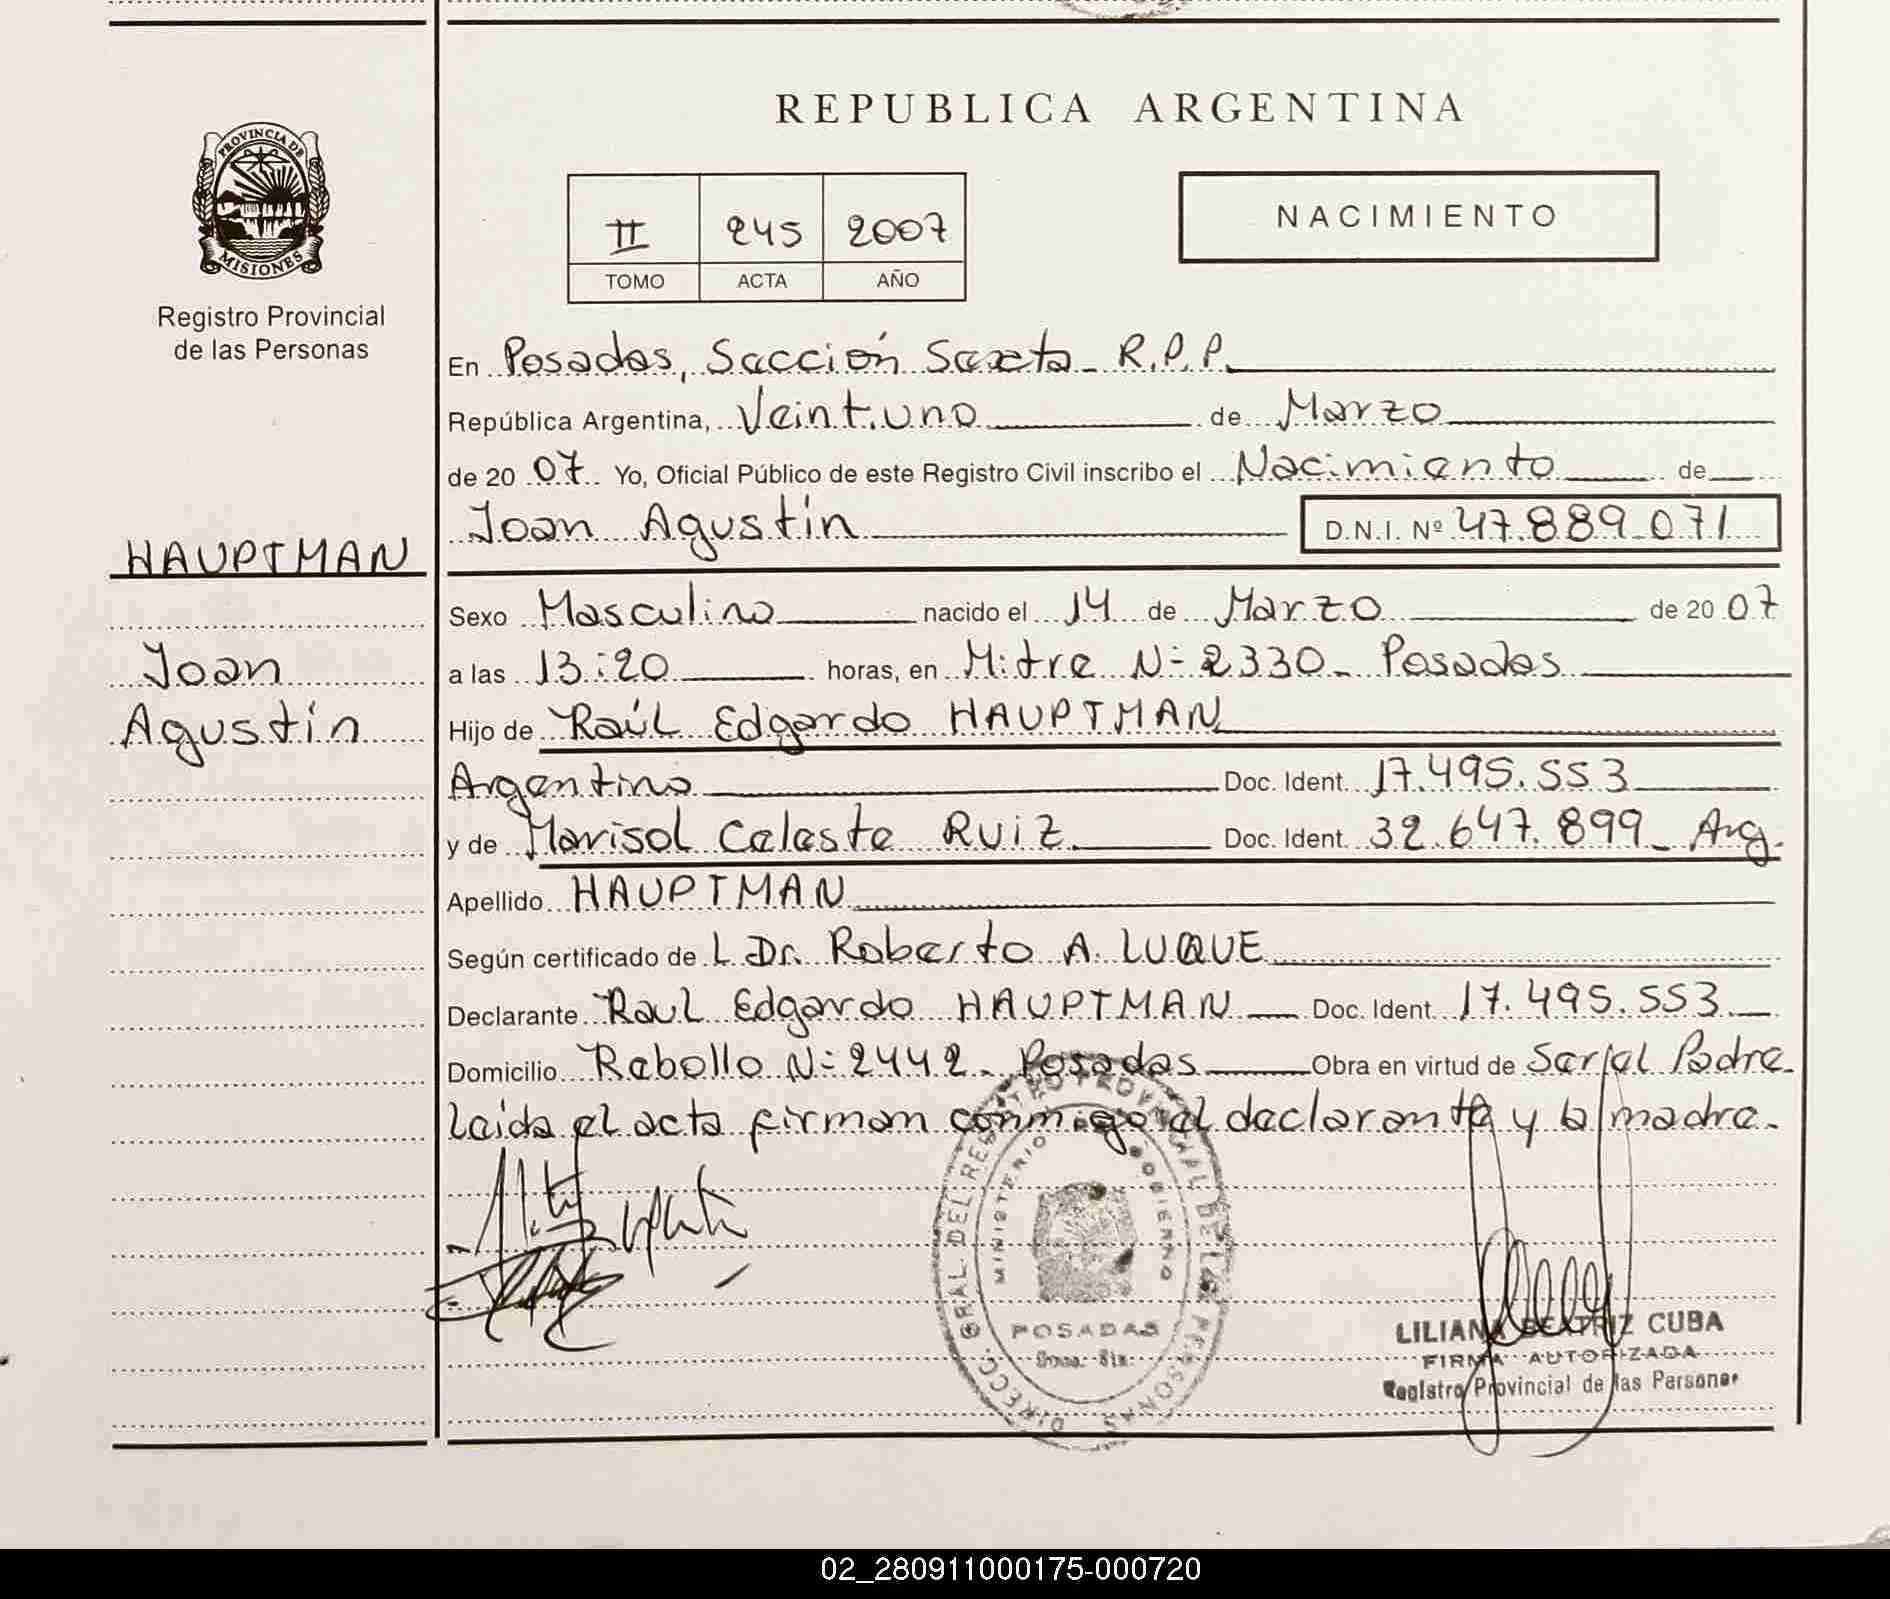 REPUBLICA ARGENTINA
PROVINCIA DE MISIONES
Registro Provincial
de las Personas
II 245 2007
TOMO ACTA AÑO
NACIMIENTO
En Posadas, Sección Sexta - R.P.P.
República Argentina, Veintiuno de Marzo
de 20 07 Yo, Oficial Público de este Registro Civil inscribo el Nacimiento de
Joan Agustín D.N.I. Nº 47.889.071
HAUPTMAN
Joan
Agustín
Sexo Masculino nacido el 14 de Marzo de 20 07
a las 13:20 horas, en Mitre Nº 2330 - Posadas
Hijo de Raúl Edgardo HAUPTMAN
Argentino Doc. Ident. 17.495.553
y de Marisol Celeste RUIZ Doc. Ident. 32.647.899 - Arg.
Apellido HAUPTMAN
Según certificado de L Dr. Roberto A. LUQUE
Declarante Raul Edgardo HAUPTMAN Doc. Ident. 17.495.553
Domicilio Rebollo Nº 2442 - Posadas Obra en virtud de Ser el Padre.
Leida el acta firman conmigo el declarante y la madre.
DIRECC. GRAL. DEL REGISTRO PROVINCIAL DE LAS PERSONAS
MINISTERIO DE GOBIERNO
POSADAS
LILIANA BEATRIZ CUBA
FIRMA AUTORIZADA
Registro Provincial de las Personas
02_280911000175-000720